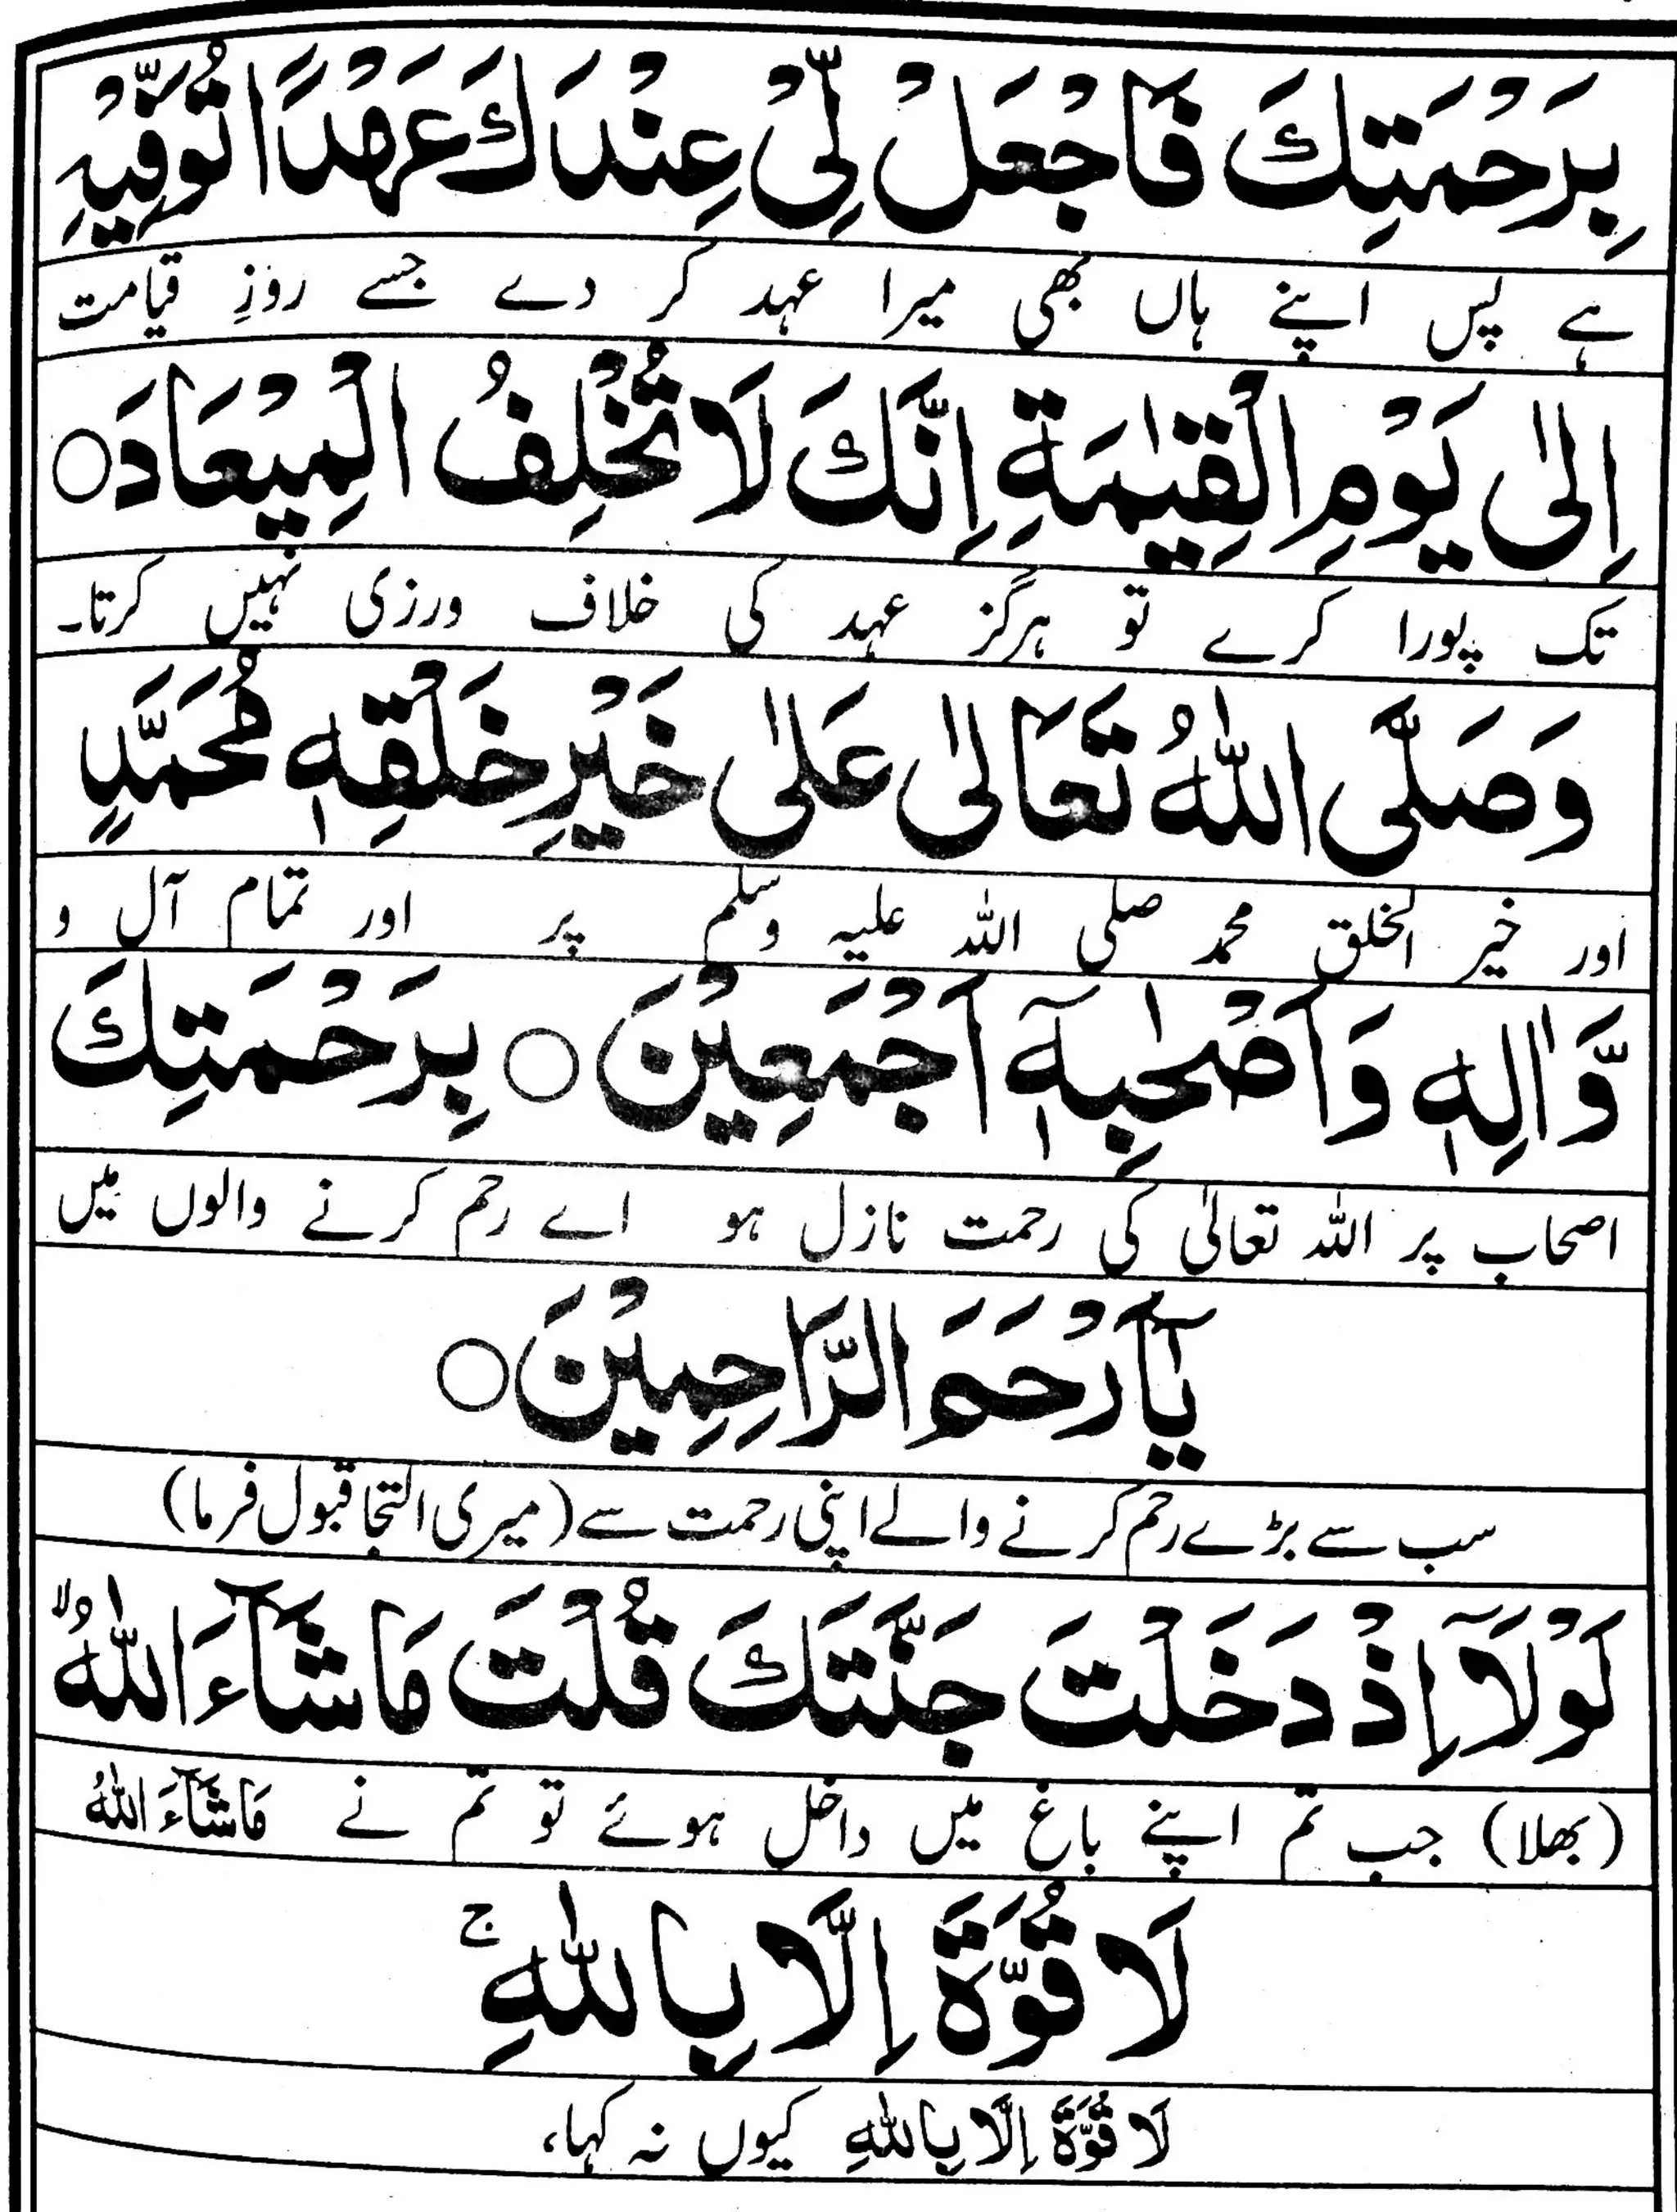 بِرَحْمَتِكَ فَاجْعَلْ لِّیْ عِنْدَكَ عَهْدًا تُوَفِّیْهِ
ہے پس اپنے ہاں بھی میرا عہد کر دے جسے روزِ قیامت
اِلٰی یَوْمِ الْقِیٰمَةِ اِنَّكَ لَا تُخْلِفُ الْمِیْعَادَ○
تک پورا کرے تو ہرگز عہد کی خلاف ورزی نہیں کرتا۔
وَصَلَّی اللّٰهُ تَعَالٰی عَلٰی خَیْرِ خَلْقِهٖ مُحَمَّدٍ
اور خیر الخلق محمد صلی اللہ علیہ وسلم پر اور تمام آل و
وَّاٰلِهٖ وَاَصْحٰبِهٖۤ اَجْمَعِیْنَ○ بِرَحْمَتِكَ
اصحاب پر اللہ تعالیٰ کی رحمت نازل ہو اے رحم کرنے والوں میں
یَاۤ اَرْحَمَ الرَّاحِمِیْنَ○
سب سے بڑے رحم کرنے والے اپنی رحمت سے (میری التجا قبول فرما)
لَوْلَاۤ اِذْ دَخَلْتَ جَنَّتَكَ قُلْتَ مَا شَآءَ اللّٰهُ ۙ
(بھلا) جب تم اپنے باغ میں داخل ہوئے تو تم نے مَاشَآءَ اللّٰهُ
لَا قُوَّةَ اِلَّا بِاللّٰهِ ۚ
لَا قُوَّةَ اِلَّا بِاللّٰهِ کیوں نہ کہا،